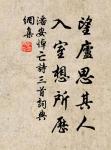 望廬思其人
入室想所歷
潘安悼亡詩三首詞典
網集